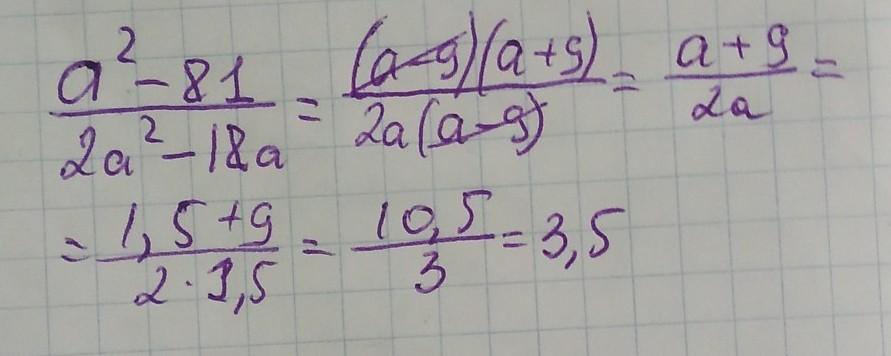 (a² - 81)/(2a² - 18a) = ((a-9)(a+9))/(2a(a-9)) = (a+9)/(2a) =
= (1,5+9)/(2·1,5) = (10,5)/3 = 3,5